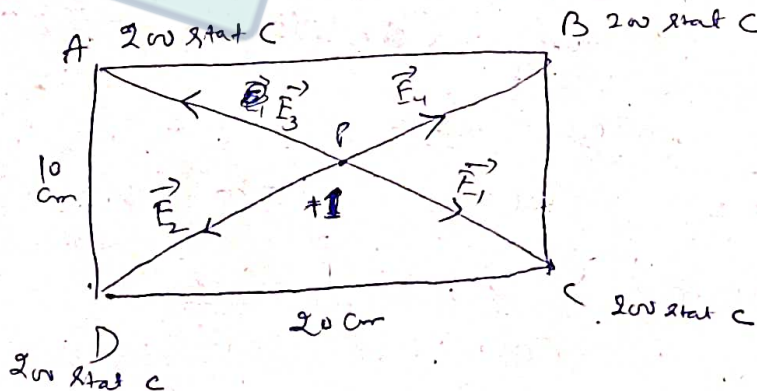 A 200 stat C
B 200 stat C
E₃
E₄
P
10 cm
E₂
+1
E₁
20 cm
C 200 stat C
D
200 stat C